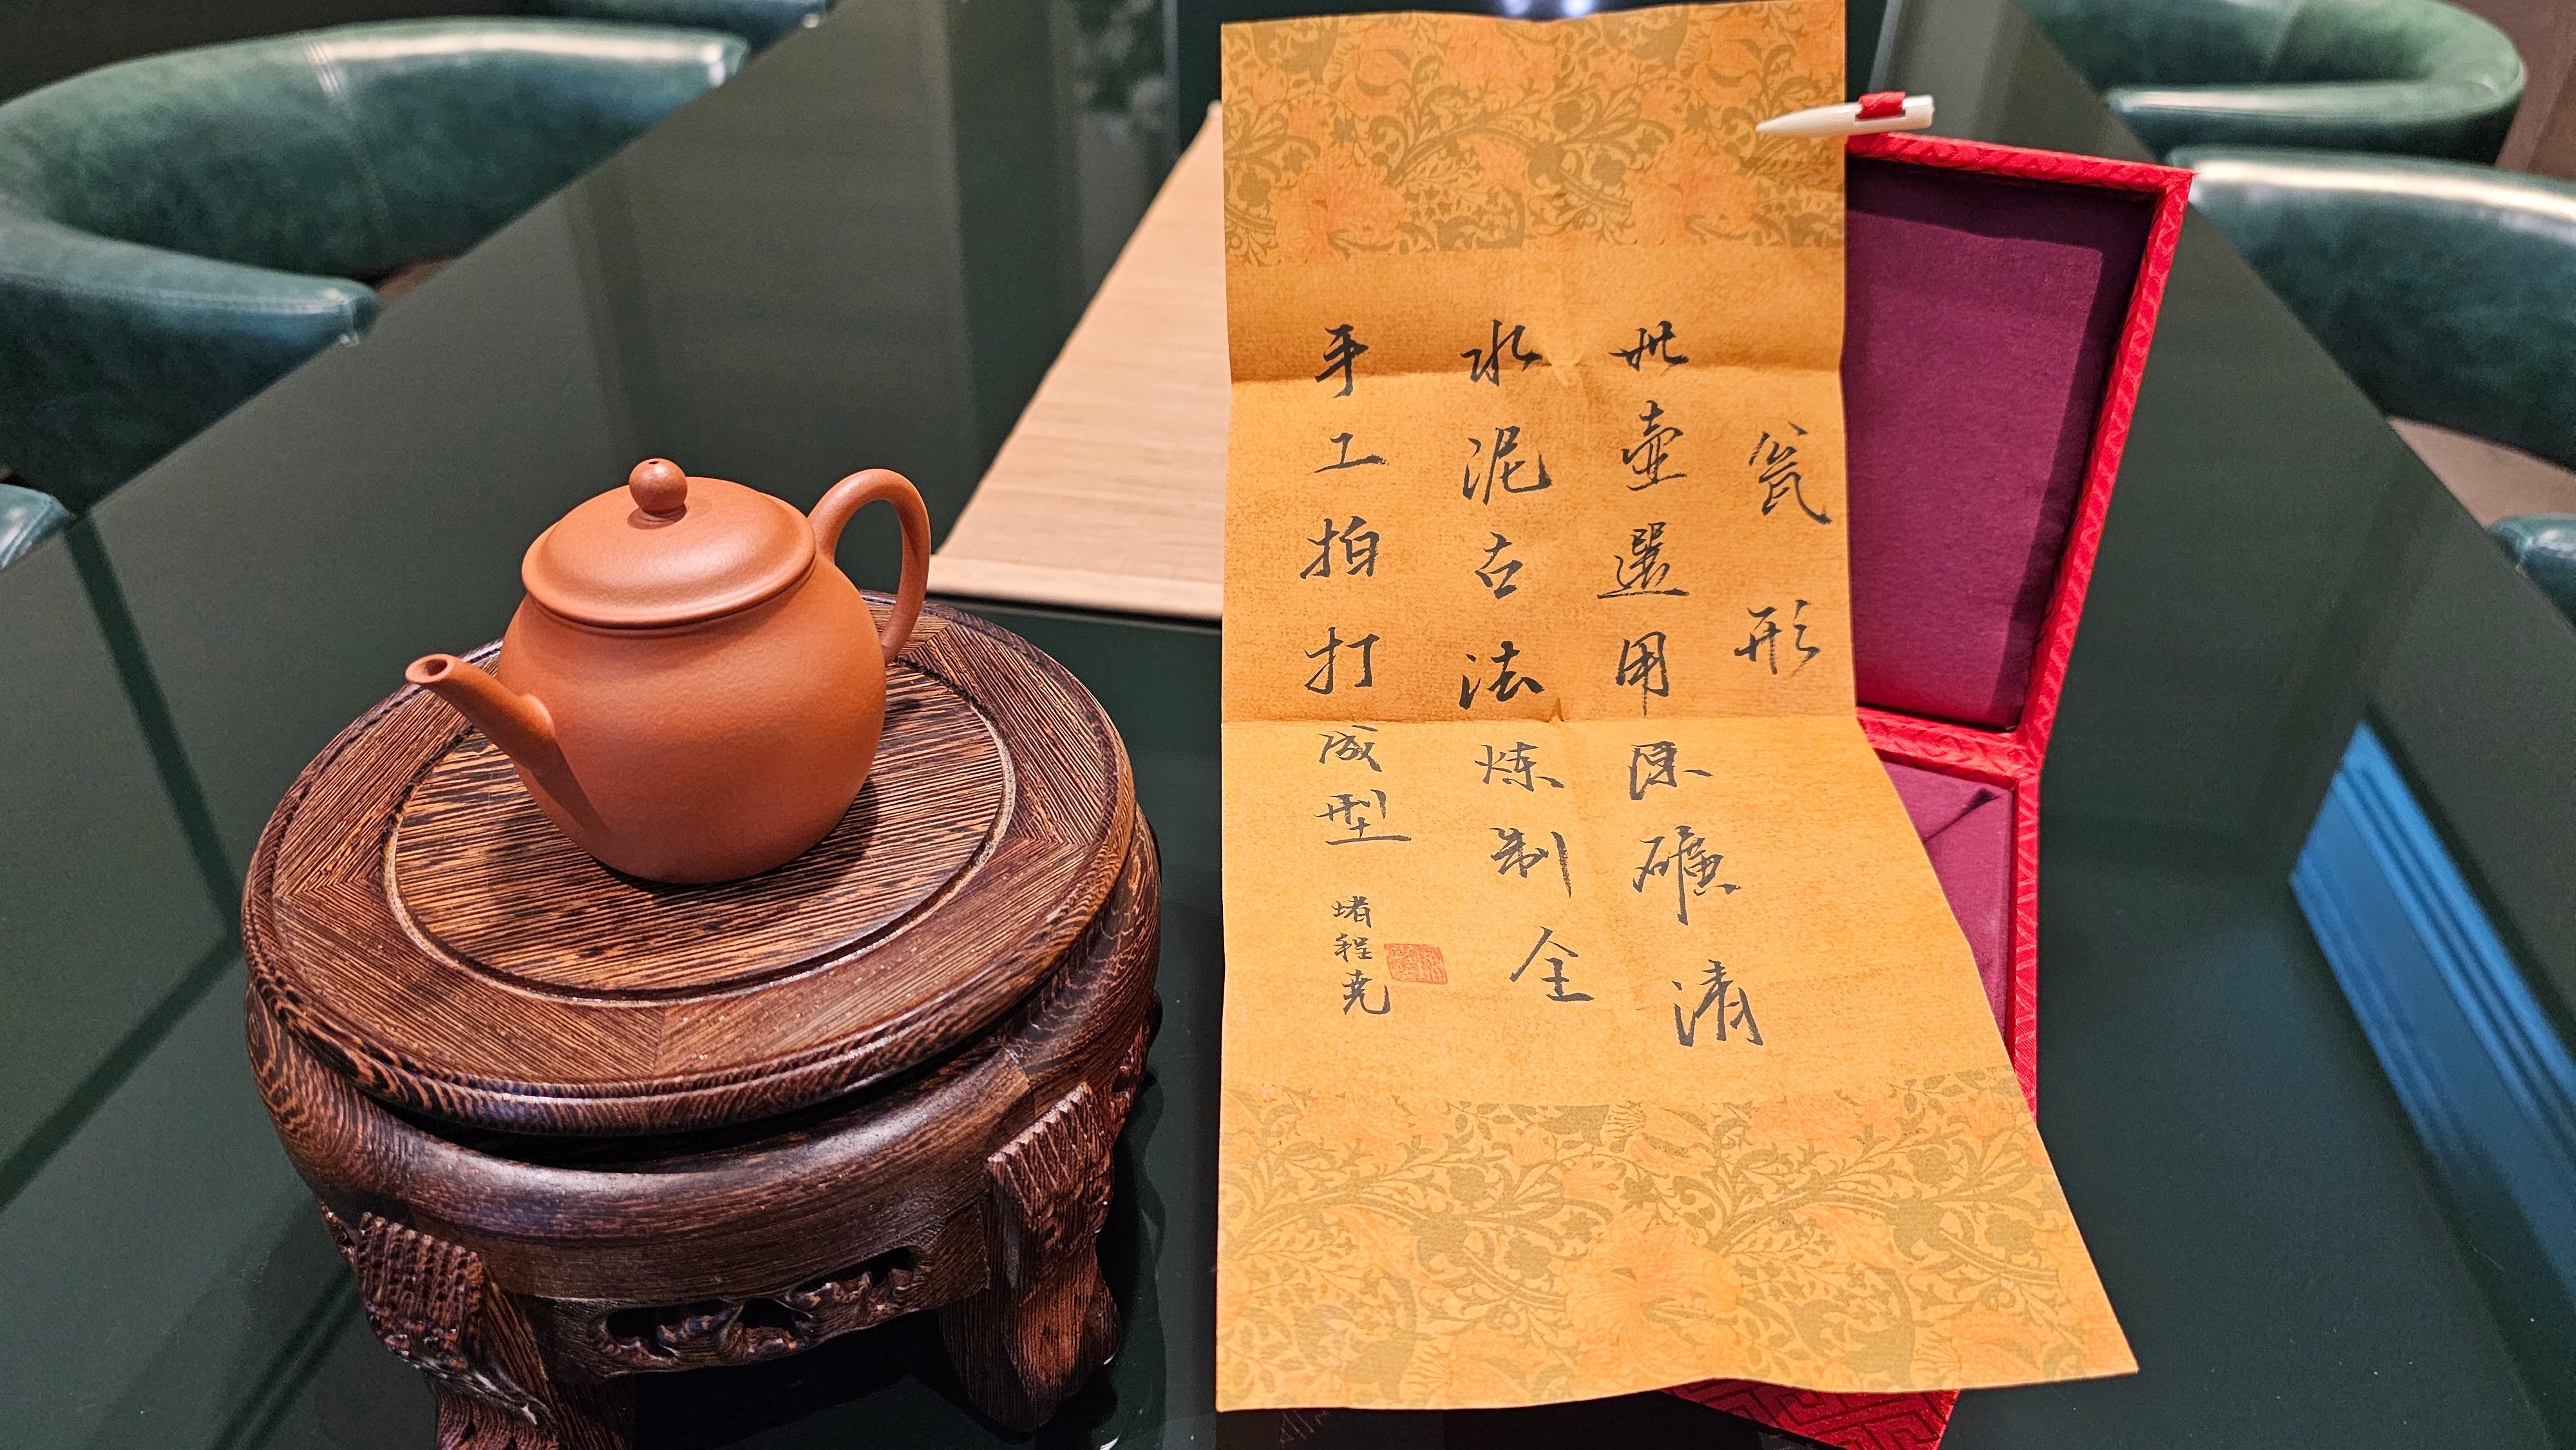 瓮形
此壶選用原礦清
水泥古法炼制全
手工拍打成型
堵程尭